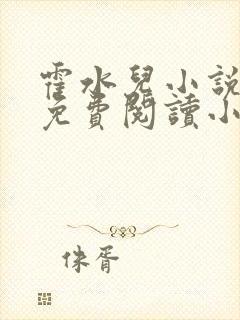 霍水兒小說
免費閱讀小
侏胥